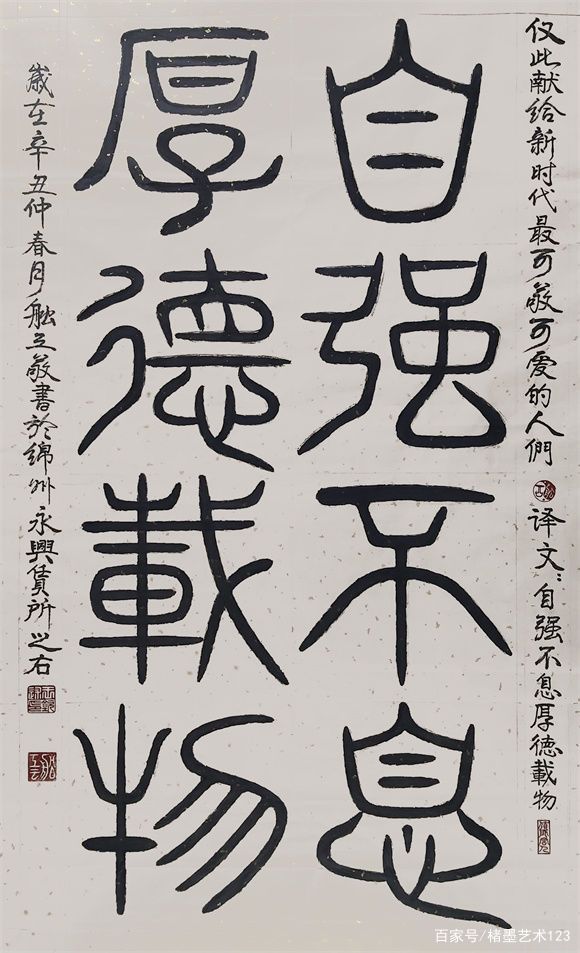 仅此献给新时代最可敬可爱的人們
译文：自强不息厚德載物
自强不息
厚德載物
歲在辛丑仲春月舩工敬書於绵州永興賃所之右
百家号/楮墨艺术123